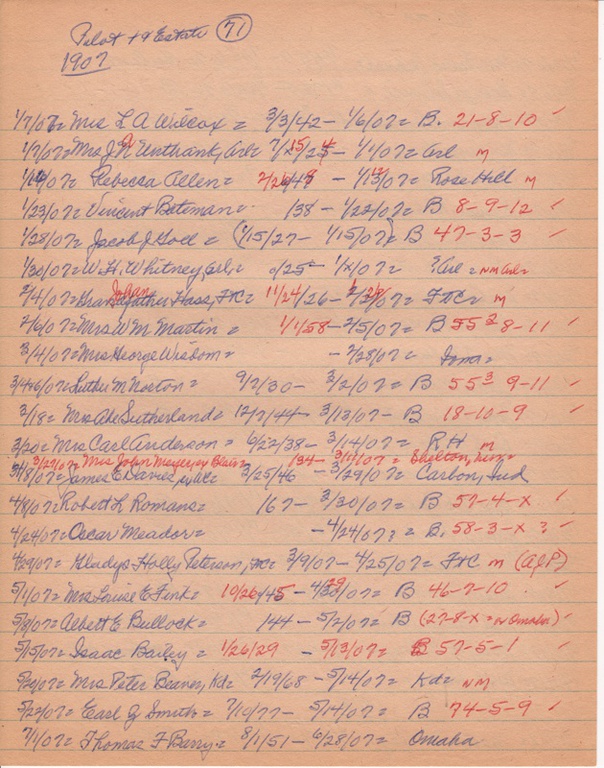 Pilot + Estate 71
1907
1/7/07= Mrs L A Wilcox = 3/3/42 - 1/6/07= B. 21-8-10 ✓
1/9/07= Mrs. J. N. Unthank, Arl= - 1/1/07= Arl m
Rebecca Allen= - Rose Hill m
1/23/07= Vincent Bateman= 138 - 1/22/07= B 8-9-12 ✓
1/28/07= Jacob J Goll = (1/15/27 - 1/15/07) B 47-3-3 ✓
1/30/07= W. H. Whitney, Arl, = /25 - 1/x/07= ? Arl = NM Arl=
2/4/07= Johan Hass, FTC= 11/24/26 - FTC= m
2/6/07= Mrs W M Martin = 1/1/58 - 2/5/07= B 55 2 8-11 ✓
3/4/07= Mrs George Wisdom= - 2/28/07= Iowa=
3/4+6/07= Luther M Norton= 9/2/30 - 3/2/07= B 55 3 9-11 ✓
3/18= Mrs Abe Sutherland= 12/7/44 - 3/13/07- B 18-10-9 ✓
3/20= Mrs Carl Anderson = 6/22/38 - 3/14/07= R.H m
3/27/07= Mrs John Meyer, ex Blair= 134 - 3/11/07= Shelton,
James E Davies, 3/25/46 - 3/29/07= Carbon, Ind
4/8/07= Robert L Romans= 167 - 3/30/07= B 57-4-x ✓
4/24/07= Oscar Meador= - 4/24/07? = B. 58-3-x ? ✓
4/29/07= Gladys Holly Peterson, FTC= 3/9/07 - 4/25/07= FTC m (AJP)
5/1/07= Mrs Louise E Fink= 10/26/45 - B 46-7-10 ✓
5/9/07= Albert E Bullock= 144 - 5/2/07= B (27-8-x = Omaha) ✓
5/15/07= Isaac Bailey = 1/26/29 - 5/13/07= B 57-5-1 ✓
5/20/07= Mrs Peter Beaver, Kd= 2/19/68 - 5/14/07= Kd= NM
5/22/07= Earl G Smith= 7/10/77 - 5/14/07= B 74-5-9 ✓
7/1/07= Thomas F Barry= 8/1/51 - 6/28/07= Omaha